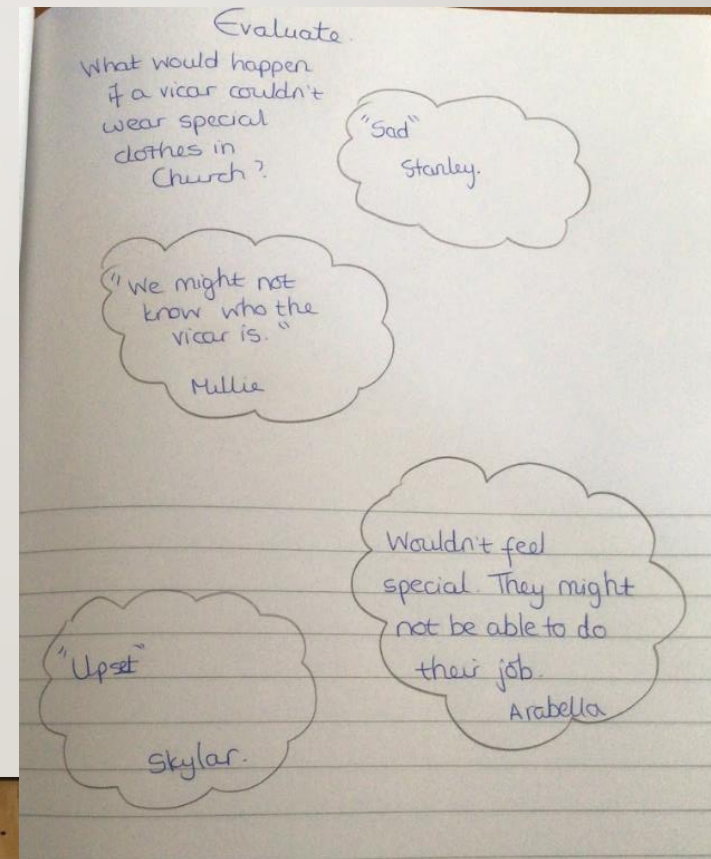 Evaluate.
What would happen
if a vicar couldn't
wear special
clothes in
Church?
"Sad"
Stanley.
"We might not
know who the
vicar is."
Millie
Wouldn't feel
special. They might
not be able to do
their job.
Arabella
"Upset"
Skylar.